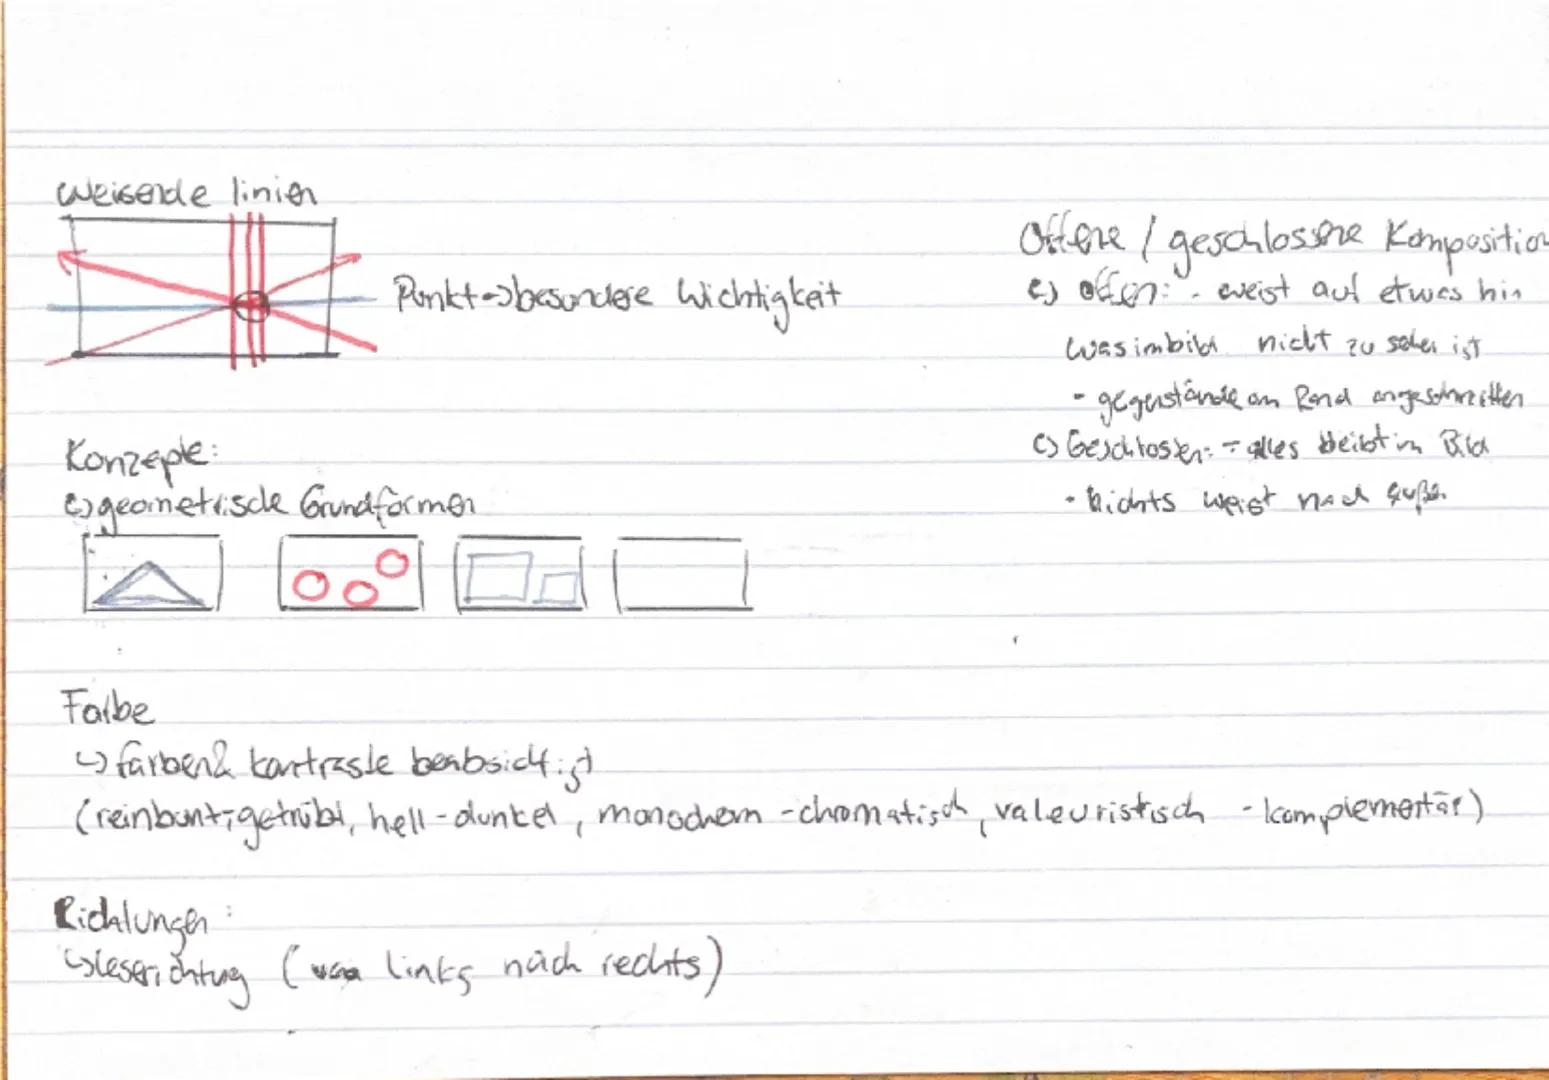 weisende linien
Punkt->besondere Wichtigkeit
Konzepte:
↳geometrische Grundformen
Offene / geschlossene Komposition
↳ offen: - weist auf etwas hin
was im bild nicht zu sehen ist
- gegenstände am Rand angeschnitten
↳ Geschlossen: - alles bleibt im Bild
- Nichts weist nach außen
Farbe
↳ farben& kontraste beabsichtigt
(reinbunt-getrübt, hell-dunkel, monochrom -chromatisch, valeuristisch -komplementär)
Richtungen:
↳leserichtung (von links nach rechts)